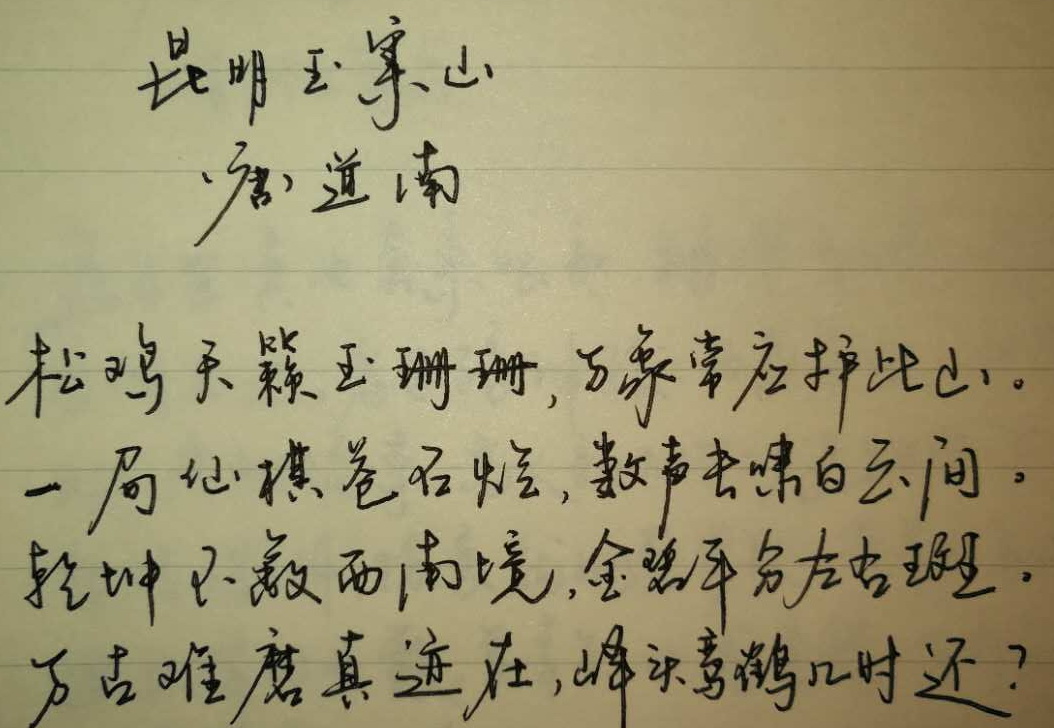 昆明玉案山
唐道南
松鸣天籁玉珊珊,万象常应护此山。
一局仙棋苍石烂,数声长啸白云间。
乾坤不蔽西南境,金碧平分左右班。
万古难磨真迹在,峰头鸾鹤几时还?